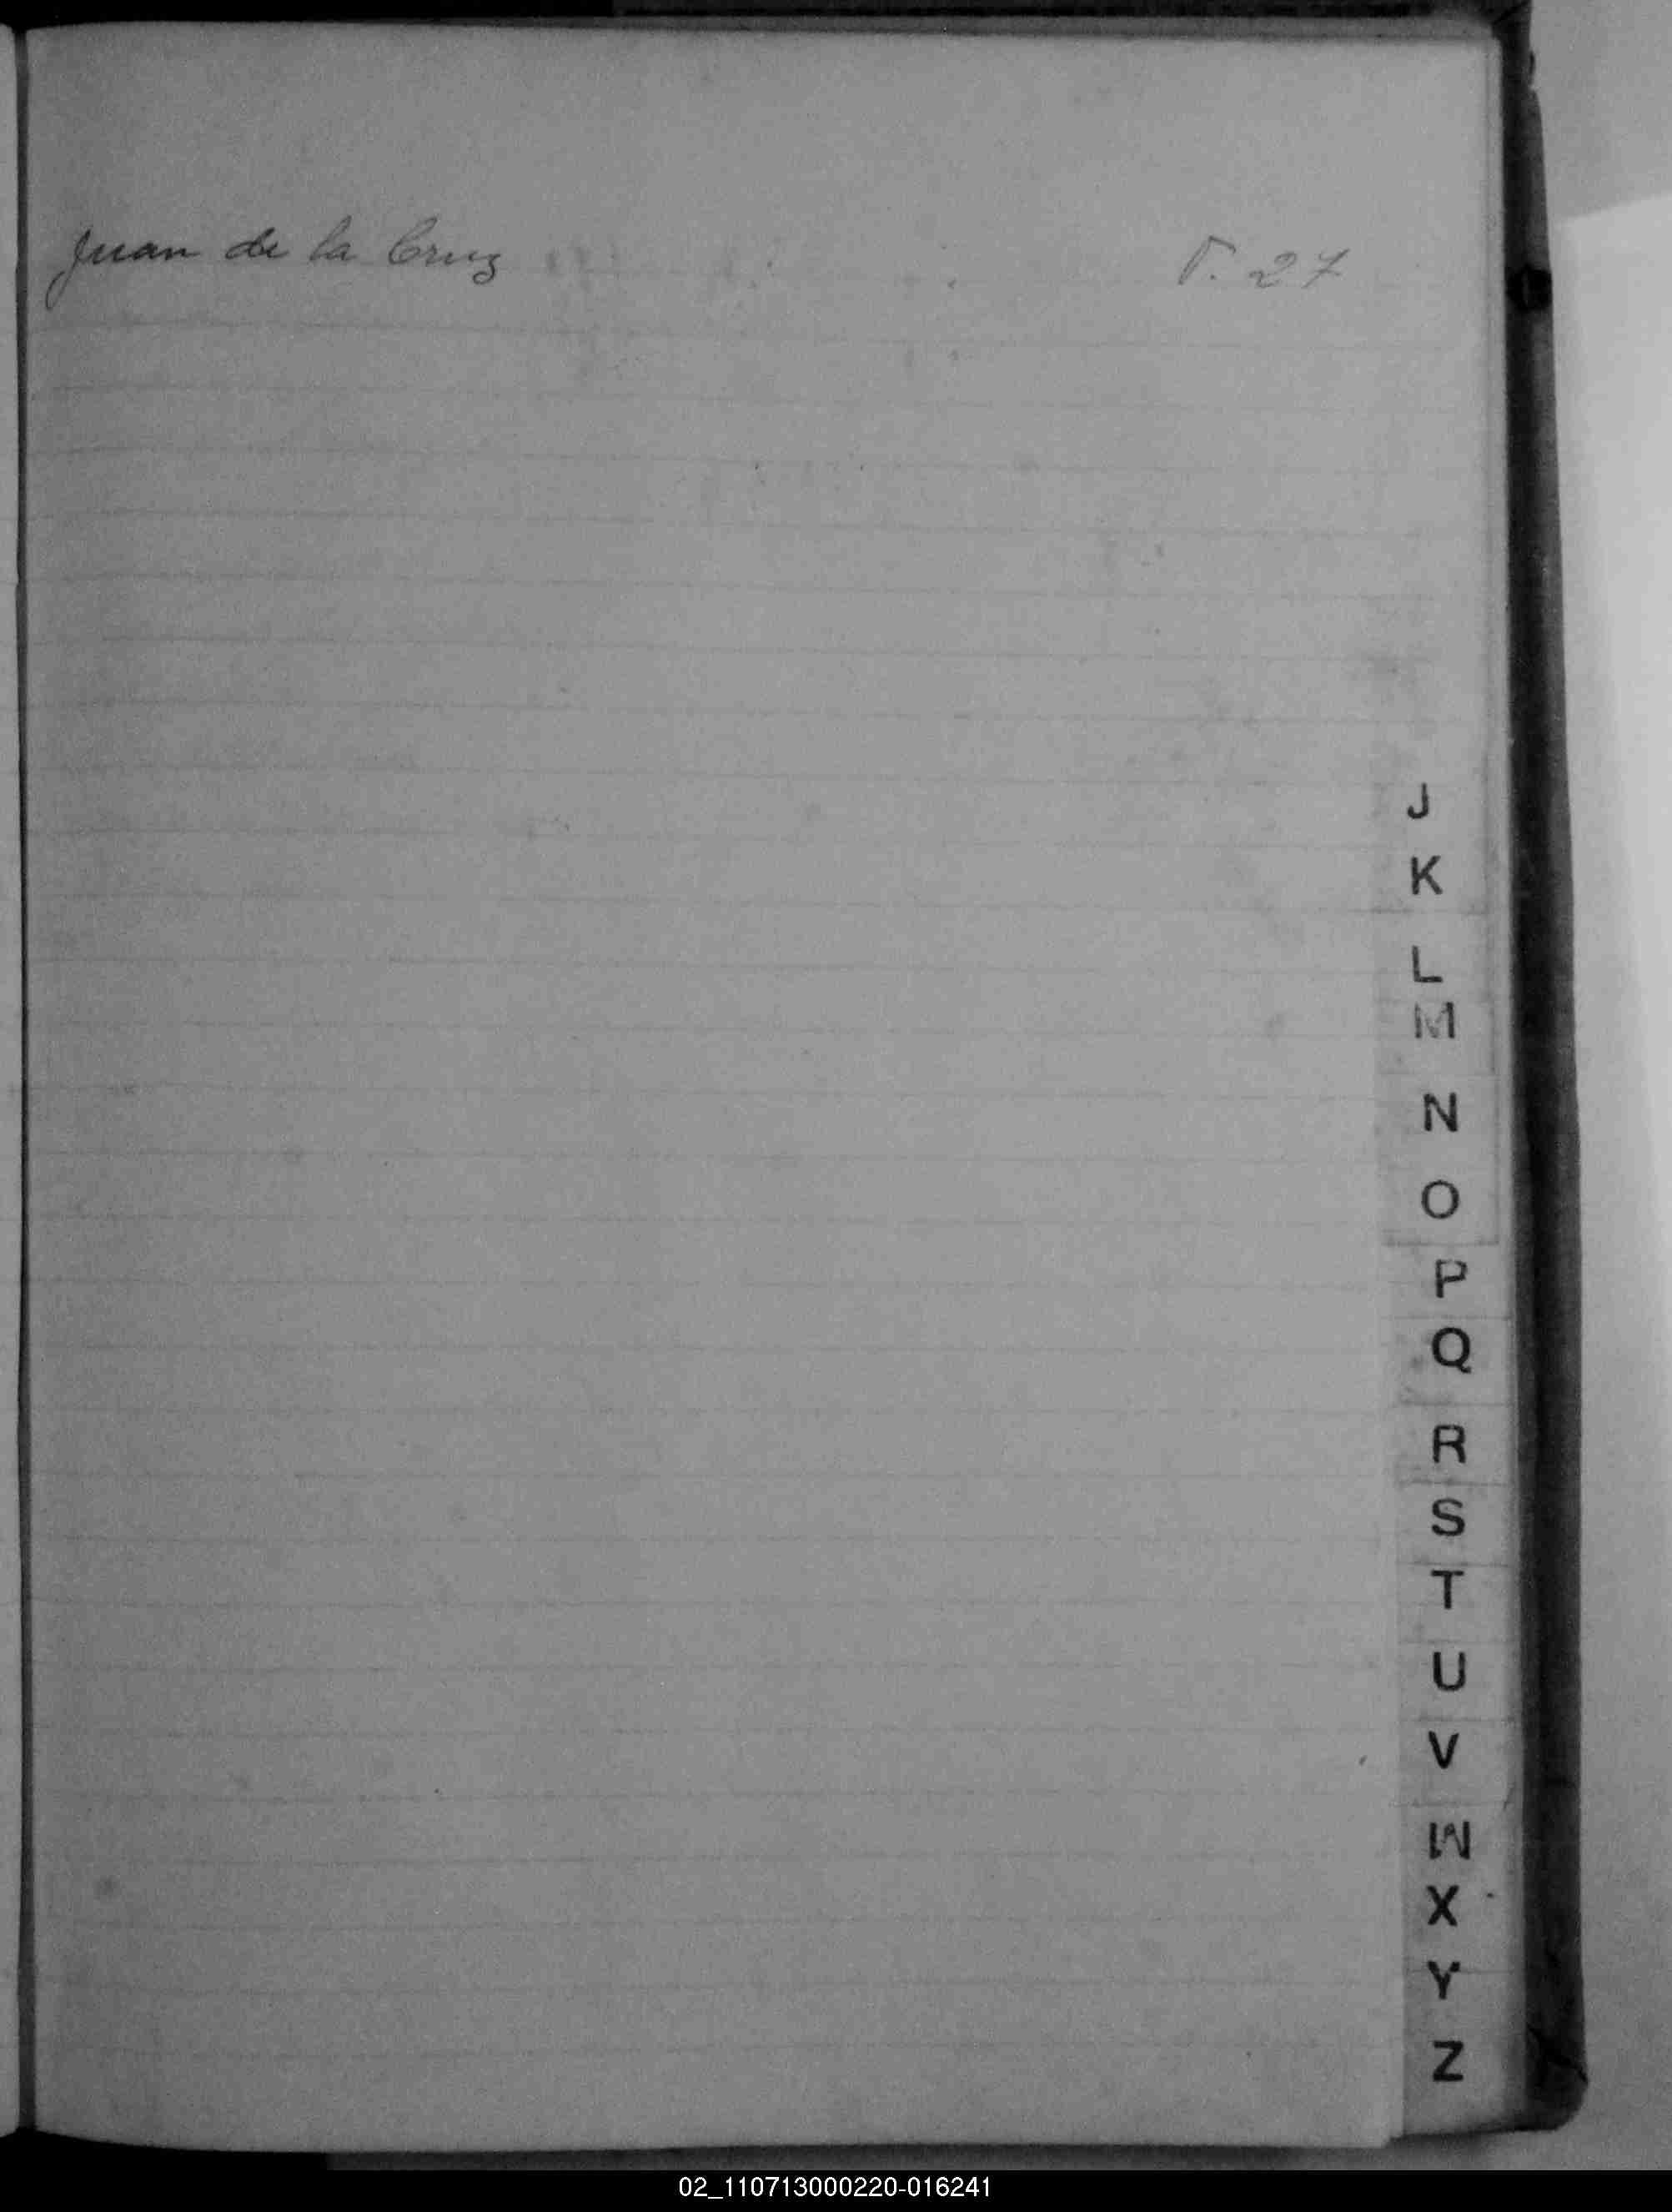 Juan de la Cruz P. 27
J
K
L
M
N
O
P
Q
R
S
T
U
V
W
X
Y
Z
02_110713000220-016241